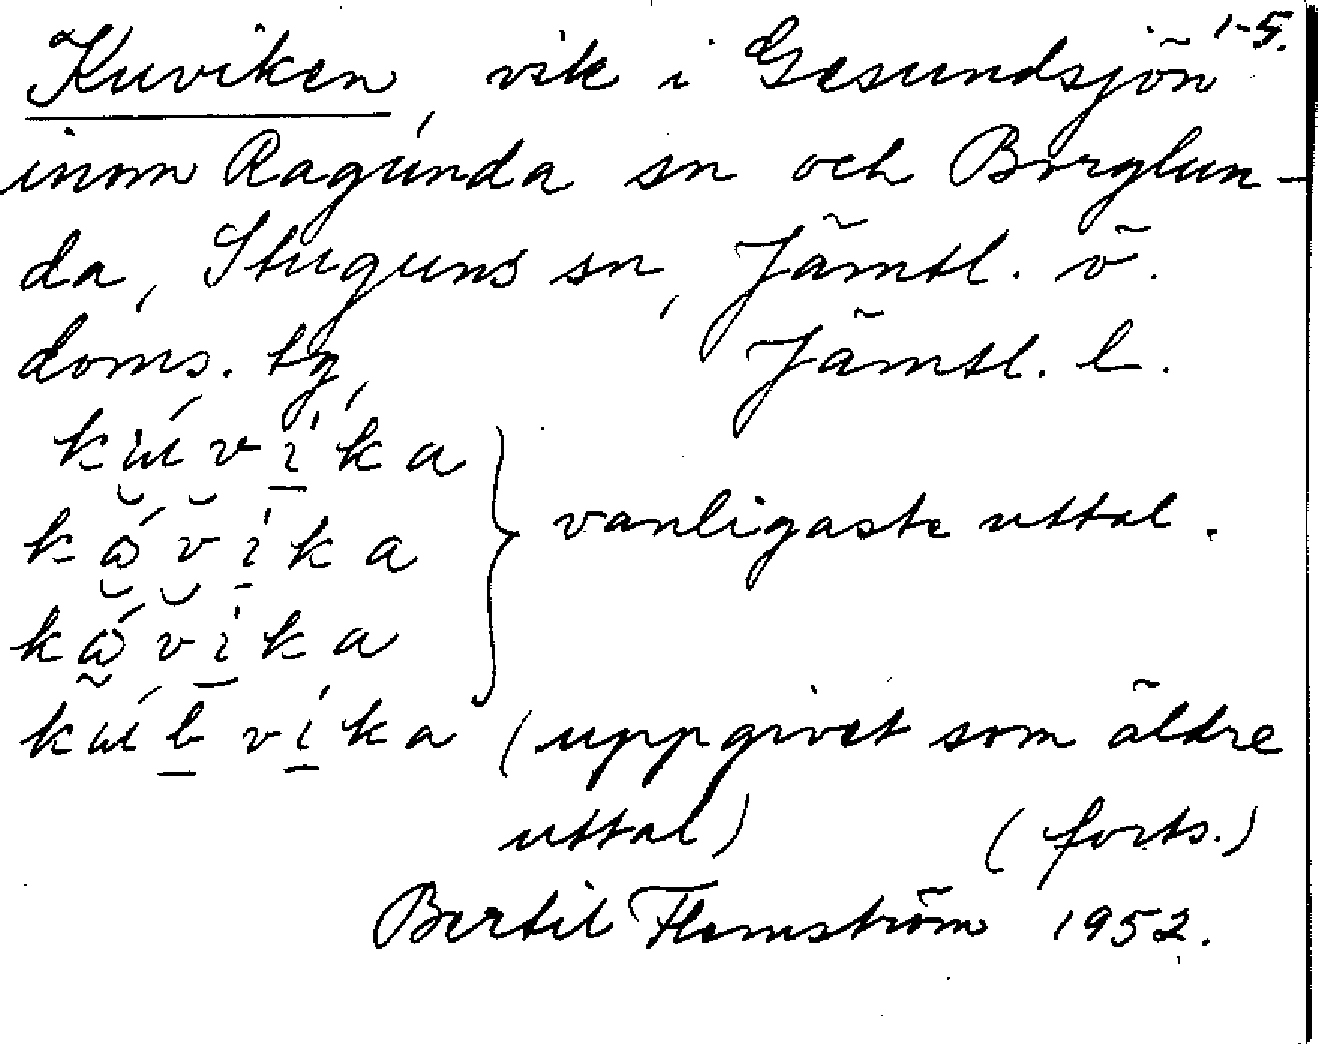 Kuviken, vik i Gesundsjön 1-5.
inom Ragunda sn och Borglun-
da, Stuguns sn, Jämtl. ö.
doms. tg, Jämtl. l.
vanligaste uttal.
(uppgivet som äldre
uttal) (forts.)
Bertil Flemström 1952.